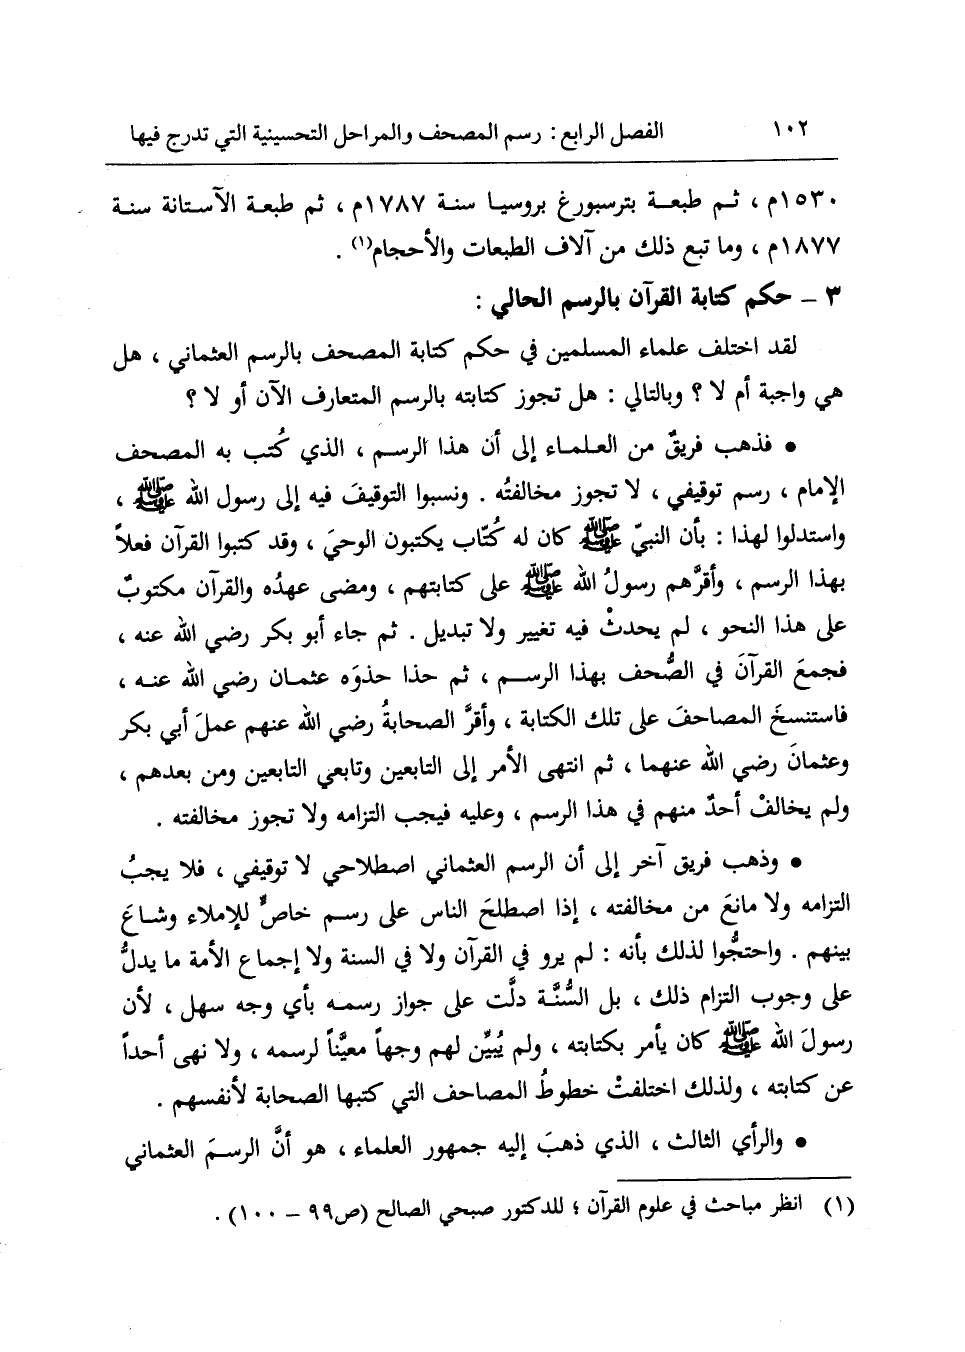 ١٠٢ الفصل الرابع : رسم المصحف والمراحل التحسينية التي تدرج فيها
١٥٣٠م ، ثم طبعة بترسبورغ بروسيا سنة ١٧٨٧م ، ثم طبعة الآستانة سنة
١٨٧٧م ، وما تبع ذلك من آلاف الطبعات والأحجام(١) .
٣ – حكم كتابة القرآن بالرسم الحالي :
لقد اختلف علماء المسلمين في حكم كتابة المصحف بالرسم العثماني ، هل
هي واجبة أم لا ؟ وبالتالي : هل تجوز كتابته بالرسم المتعارف الآن أو لا ؟
• فذهب فريقٌ من العلماء إلى أن هذا الرسم ، الذي كُتب به المصحف
الإمام ، رسم توقيفي ، لا تجوز مخالفتُه . ونسبوا التوقيفَ فيه إلى رسول الله ﷺ ،
واستدلوا لهذا : بأن النبيّ ﷺ كان له كُتّاب يكتبون الوحيَ ، وقد كتبوا القرآن فعلاً
بهذا الرسم ، وأقرَّهم رسولُ الله ﷺ على كتابتهم ، ومضى عهدُه والقرآن مكتوبٌ
على هذا النحو ، لم يحدثْ فيه تغيير ولا تبديل . ثم جاء أبو بكر رضي الله عنه ،
فجمعَ القرآنَ في الصُّحف بهذا الرسم ، ثم حذا حذوَه عثمان رضي الله عنه ،
فاستنسخَ المصاحفَ على تلك الكتابة ، وأقرَّ الصحابةُ رضي الله عنهم عملَ أبي بكر
وعثمانَ رضي الله عنهما ، ثم انتهى الأمر إلى التابعين وتابعي التابعين ومن بعدهم ،
ولم يخالفْ أحدٌ منهم في هذا الرسم ، وعليه فيجب التزامه ولا تجوز مخالفته .
• وذهب فريق آخر إلى أن الرسم العثماني اصطلاحي لا توقيفي ، فلا يجبُ
التزامه ولا مانعَ من مخالفته ، إذا اصطلحَ الناس على رسم خاصٌّ للإملاء وشاعَ
بينهم . واحتجُّوا لذلك بأنه : لم يرو في القرآن ولا في السنة ولا إجماع الأمة ما يدلُّ
على وجوب التزام ذلك ، بل السُّنَّة دلَّت على جواز رسمه بأي وجه سهل ، لأن
رسولَ الله ﷺ كان يأمر بكتابته ، ولم يُبيِّن لهم وجهاً معيَّناً لرسمه ، ولا نهى أحداً
عن كتابته ، ولذلك اختلفتْ خطوطُ المصاحف التي كتبها الصحابة لأنفسهم .
• والرأي الثالث ، الذي ذهبَ إليه جمهور العلماء ، هو أنَّ الرسمَ العثماني
(١) انظر مباحث في علوم القرآن ؛ للدكتور صبحي الصالح (ص٩٩ – ١٠٠) .